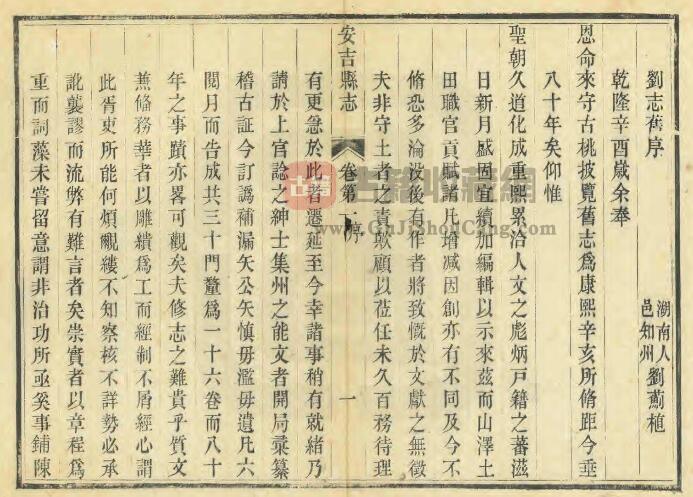 劉志舊序
湖南人
邑知州劉薊植
乾隆辛酉歲余奉
恩命來守古桃披覽舊志爲康熙辛亥所脩距今垂
八十年矣仰惟
聖朝久道化成重熙累洽人文之彪炳戸籍之蕃滋
日新月盛固宜續加編輯以示來茲而山澤土
田職官貢賦諸凡增减因創亦有不同及今不
脩恐多淪没後有作者將致慨於文獻之無徵
夫非守土者之責歟顧以莅任未久百務待理
安吉縣志
卷第一 序
一
有更急於此者遷延至今幸諸事稍有就緒乃
請於上官諗之紳士集州之能文者開局彚纂
稽古証今訂譌補漏矢公矢慎毋濫毋遺凡六
閲月而告成共三十門釐爲一十六卷而八十
年之事蹟亦畧可觀矣夫修志之難貴乎質文
兼脩務華者以雕繢爲工而經制不屑經心謂
此胥吏所能何煩覼縷不知察核不詳勢必承
訛襲謬而流弊有難言者矣崇實者以章程爲
重而詞藻未嘗留意謂非治功所亟奚事鋪陳
古籍收藏網
www.GuJiShouCang.com